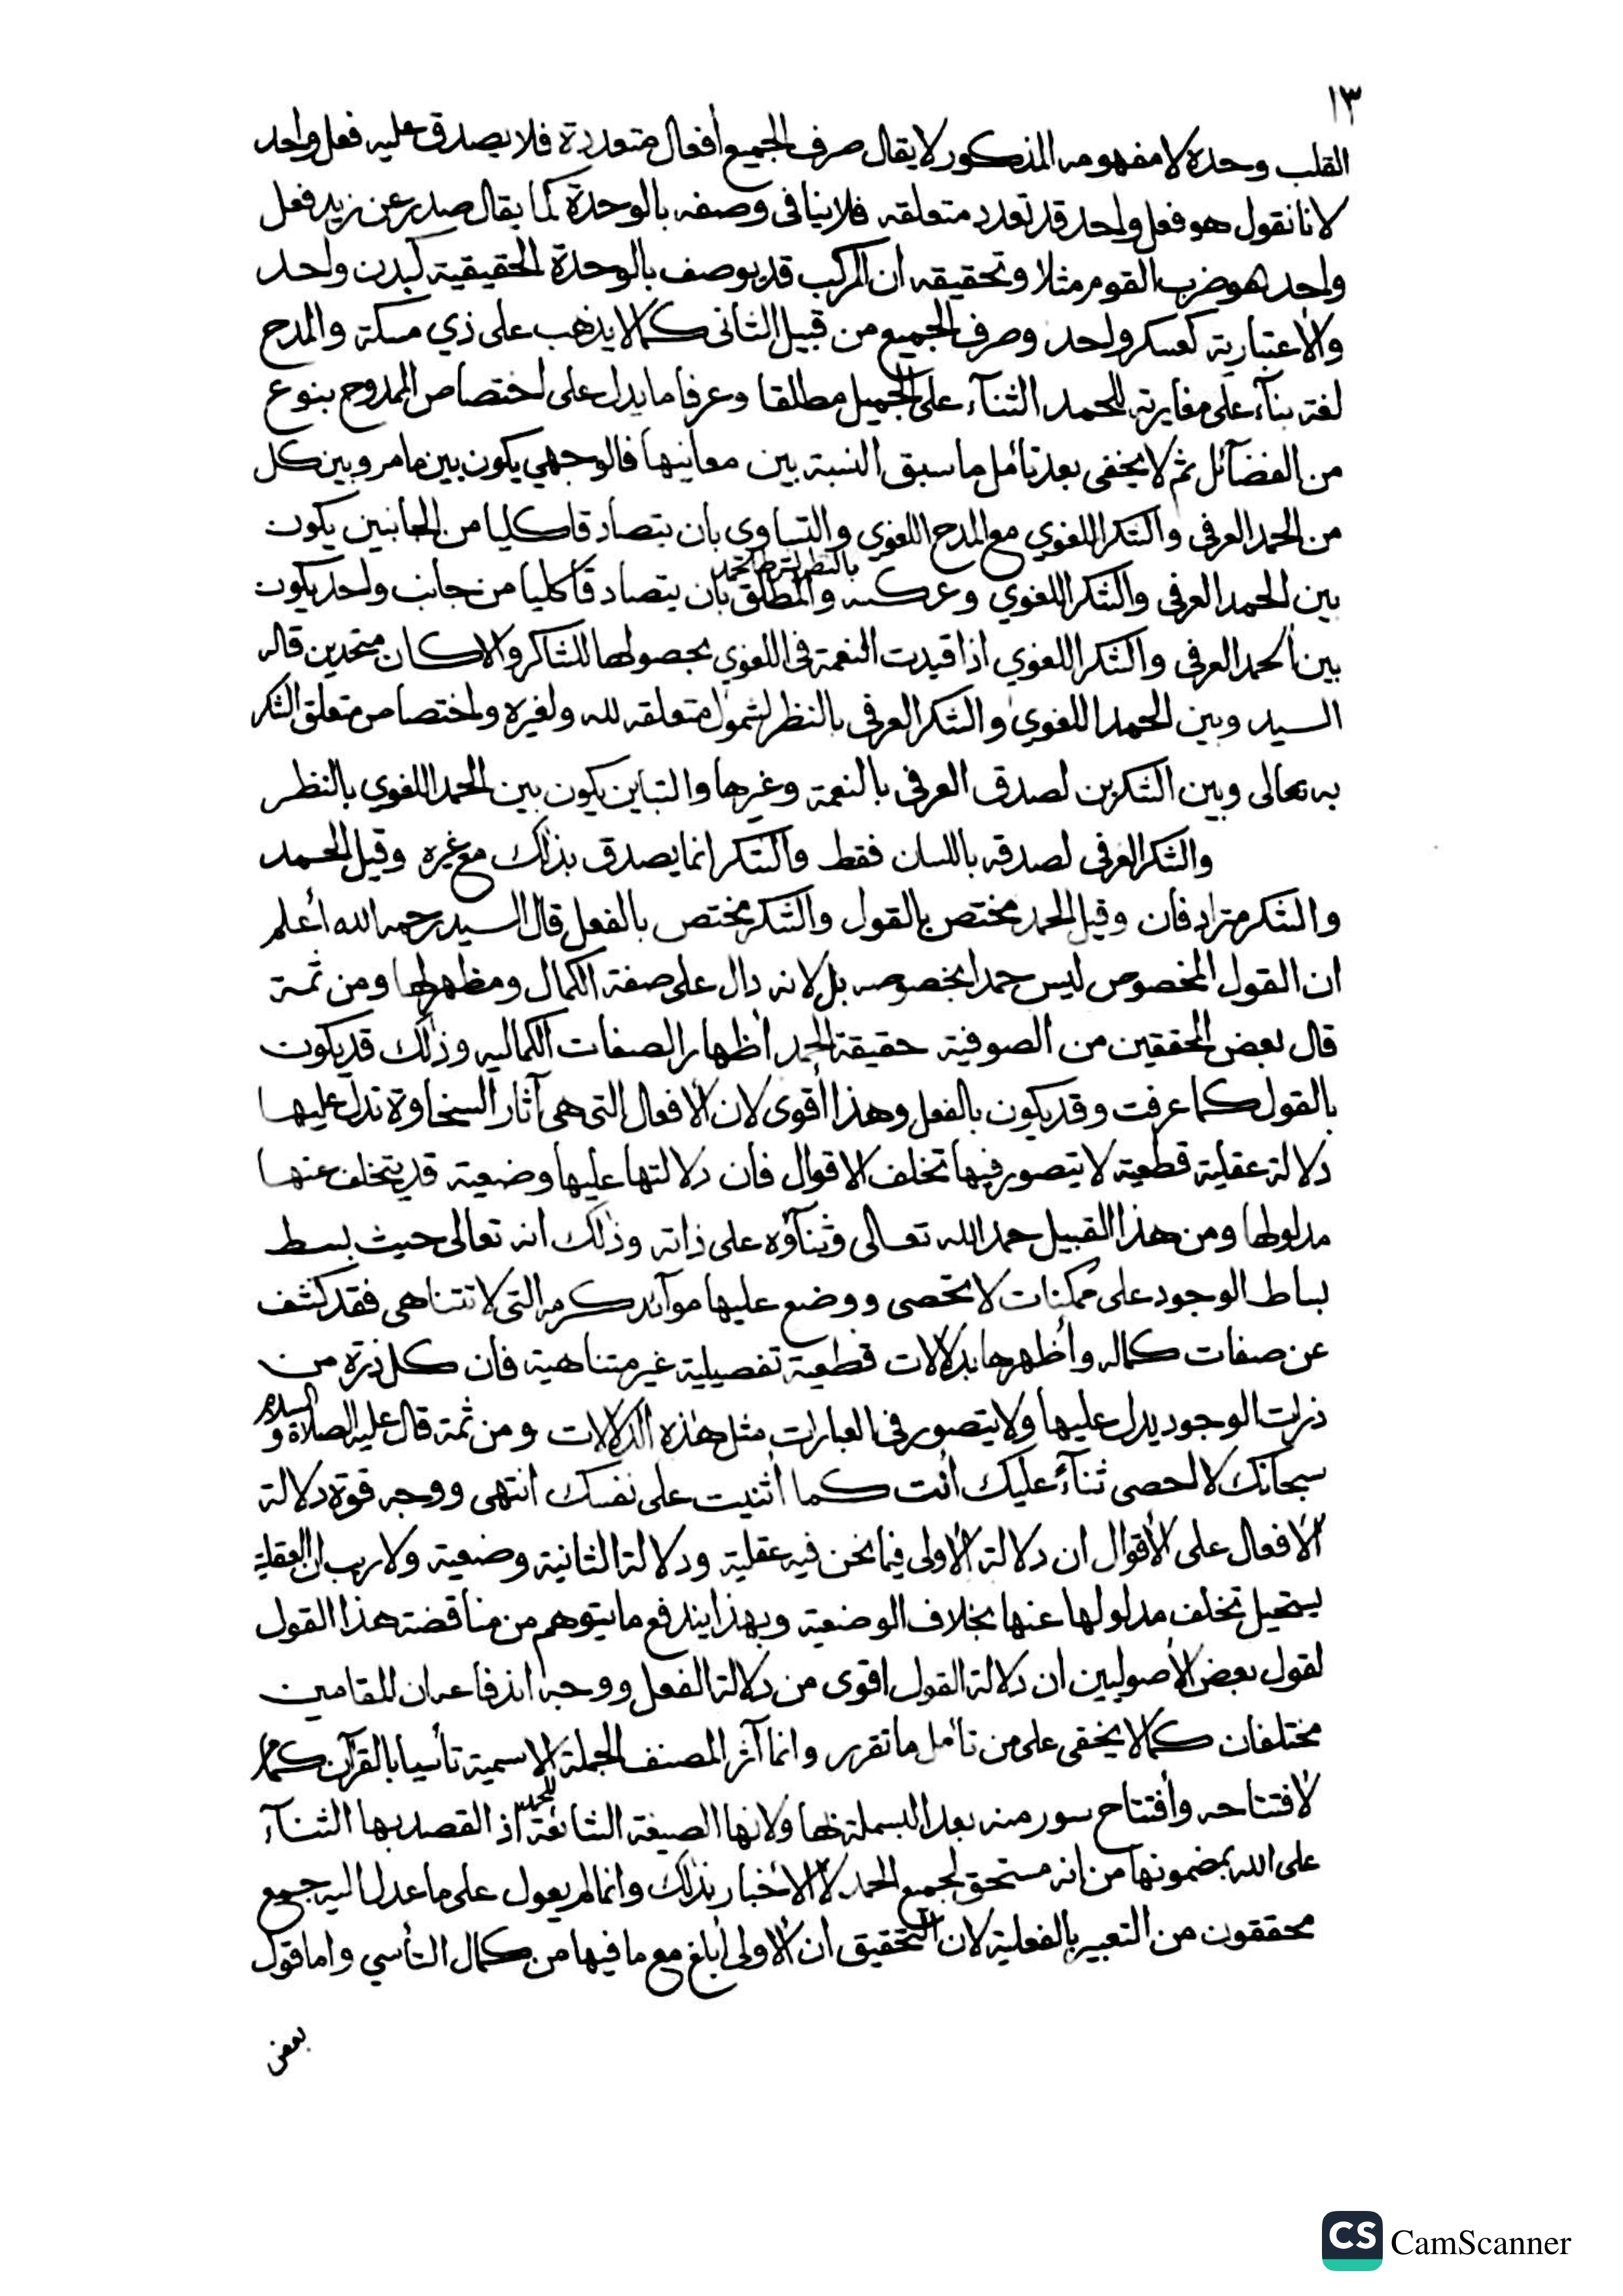 ١٣
القلب وحده لا مفهومه المذكور لا يقال صرف الجميع أفعال متعددة فلا يصدق عليه فعل واحد
لانا نقول هو فعل واحد قد تعدد متعلقه فلا ينافى وصفه بالوحدة كما يقال صدر عن زيد فعل
واحد هو ضرب القوم مثلا وتحقيقه ان المركب قد يوصف بالوحدة الحقيقية كبدن واحد
والاعتبارية كعسكر واحد وصرف الجميع من قبيل الثانى كما لا يذهب على ذي مسكة والمدح
لغة بنآء على مغايرته للحمد الثنآء على الجميل مطلقا وعرفا ما يدل على اختصاص الممدوح بنوع
من الفضآئل ثم لا يخفى بعد تأمل ما سبق النسبة بين معانيها فالوجهي يكون بين ما مر وبين كل
من الحمد العرفى والشكر اللغوي مع المدح اللغوي والتساوى بان يتصادقا كليا من الجانبين يكون
بين الحمد العرفى والشكر اللغوي وعكسه والمطلق بان يتصادقا كليا من جانب واحد يكون
بين الحمد العرفى والشكر اللغوي اذا قيدت النعمة فى اللغوي بحصولها للشاكر والا كان متحدين قاله
السيد وبين الحمد اللغوي والشكر العرفى بالنظر لشمول متعلقه لله ولغيره واختصاص متعلق الشكر
به تعالى وبين الشكرين لصدق العرفى بالنعمة وغيرها والتباين يكون بين الحمد اللغوي بالنظر
والشكر العرفى لصدقه باللسان فقط والشكر انما يصدق بذلك مع غيره وقيل الحمد
والشكر مترادفان وقيل الحمد مختص بالقول والشكر مختص بالفعل قال السيد رحمه الله أعلم
ان القول المخصوص ليس حمدا بخصوصه بل لانه دال على صفة الكمال ومظهر لها ومن ثمة
قال بعض المحققين من الصوفية حقيقة الحمد أظهار الصفات الكماليه وذلك قد يكون
بالقول كما عرفت وقد يكون بالفعل وهذا أقوى لان الافعال التى هى آثار السخاوة تدل عليها
دلالة عقلية قطعية لا يتصور فيها تخلف الاقوال فان دلالتها عليها وضعية قد يتخلف عنها
مدلولها ومن هذا القبيل حمد الله تعالى وثنآؤه على ذاته وذلك انه تعالى حيث بسط
بساط الوجود على ممكنات لا تحصى ووضع عليها موآئد كرمه التى لا تتناهى فقد كشف
عن صفات كماله وأظهرها بدلالات قطعية تفصيلية غير متناهية فان كل ذرة من
ذرات الوجود يدل عليها ولا يتصور فى العبارات مثل هذه الدلالات ومن ثمة قال عليه الصلاة والسلام
سبحانك لا احصى ثنآءً عليك أنت كما أثنيت على نفسك انتهى ووجه قوة دلالة
الافعال على الأقوال ان دلالة الأولى فيما نحن فيه عقلية ودلالة الثانية وضعية ولا ريب ان العقلية
يستحيل تخلف مدلولها عنها بخلاف الوضعية وبهذا يندفع ما يتوهم من مناقضة هذا القول
لقول بعض الأصوليين ان دلالة القول اقوى من دلالة الفعل ووجه اندفاعه ان المقامين
مختلفان كما لا يخفى على من تأمل ما تقرر وانما آثر المصنف الجملة الاسمية تأسيا بالقرآن كما مر
لافتتاحه وأفتتاح سور منه بعد البسملة بها ولانها الصيغة الشائعة للحمد اذ القصد بها الثنآء
على الله بمضمونها من انه مستحق لجميع الحمد لا الأخبار بذلك وانما لم يعول على ما عدل اليه جمع
محققون من التعبير بالفعلية لان التحقيق ان الاولى أبلغ مع ما فيها من كمال التأسي واما قول
بعض
CS CamScanner